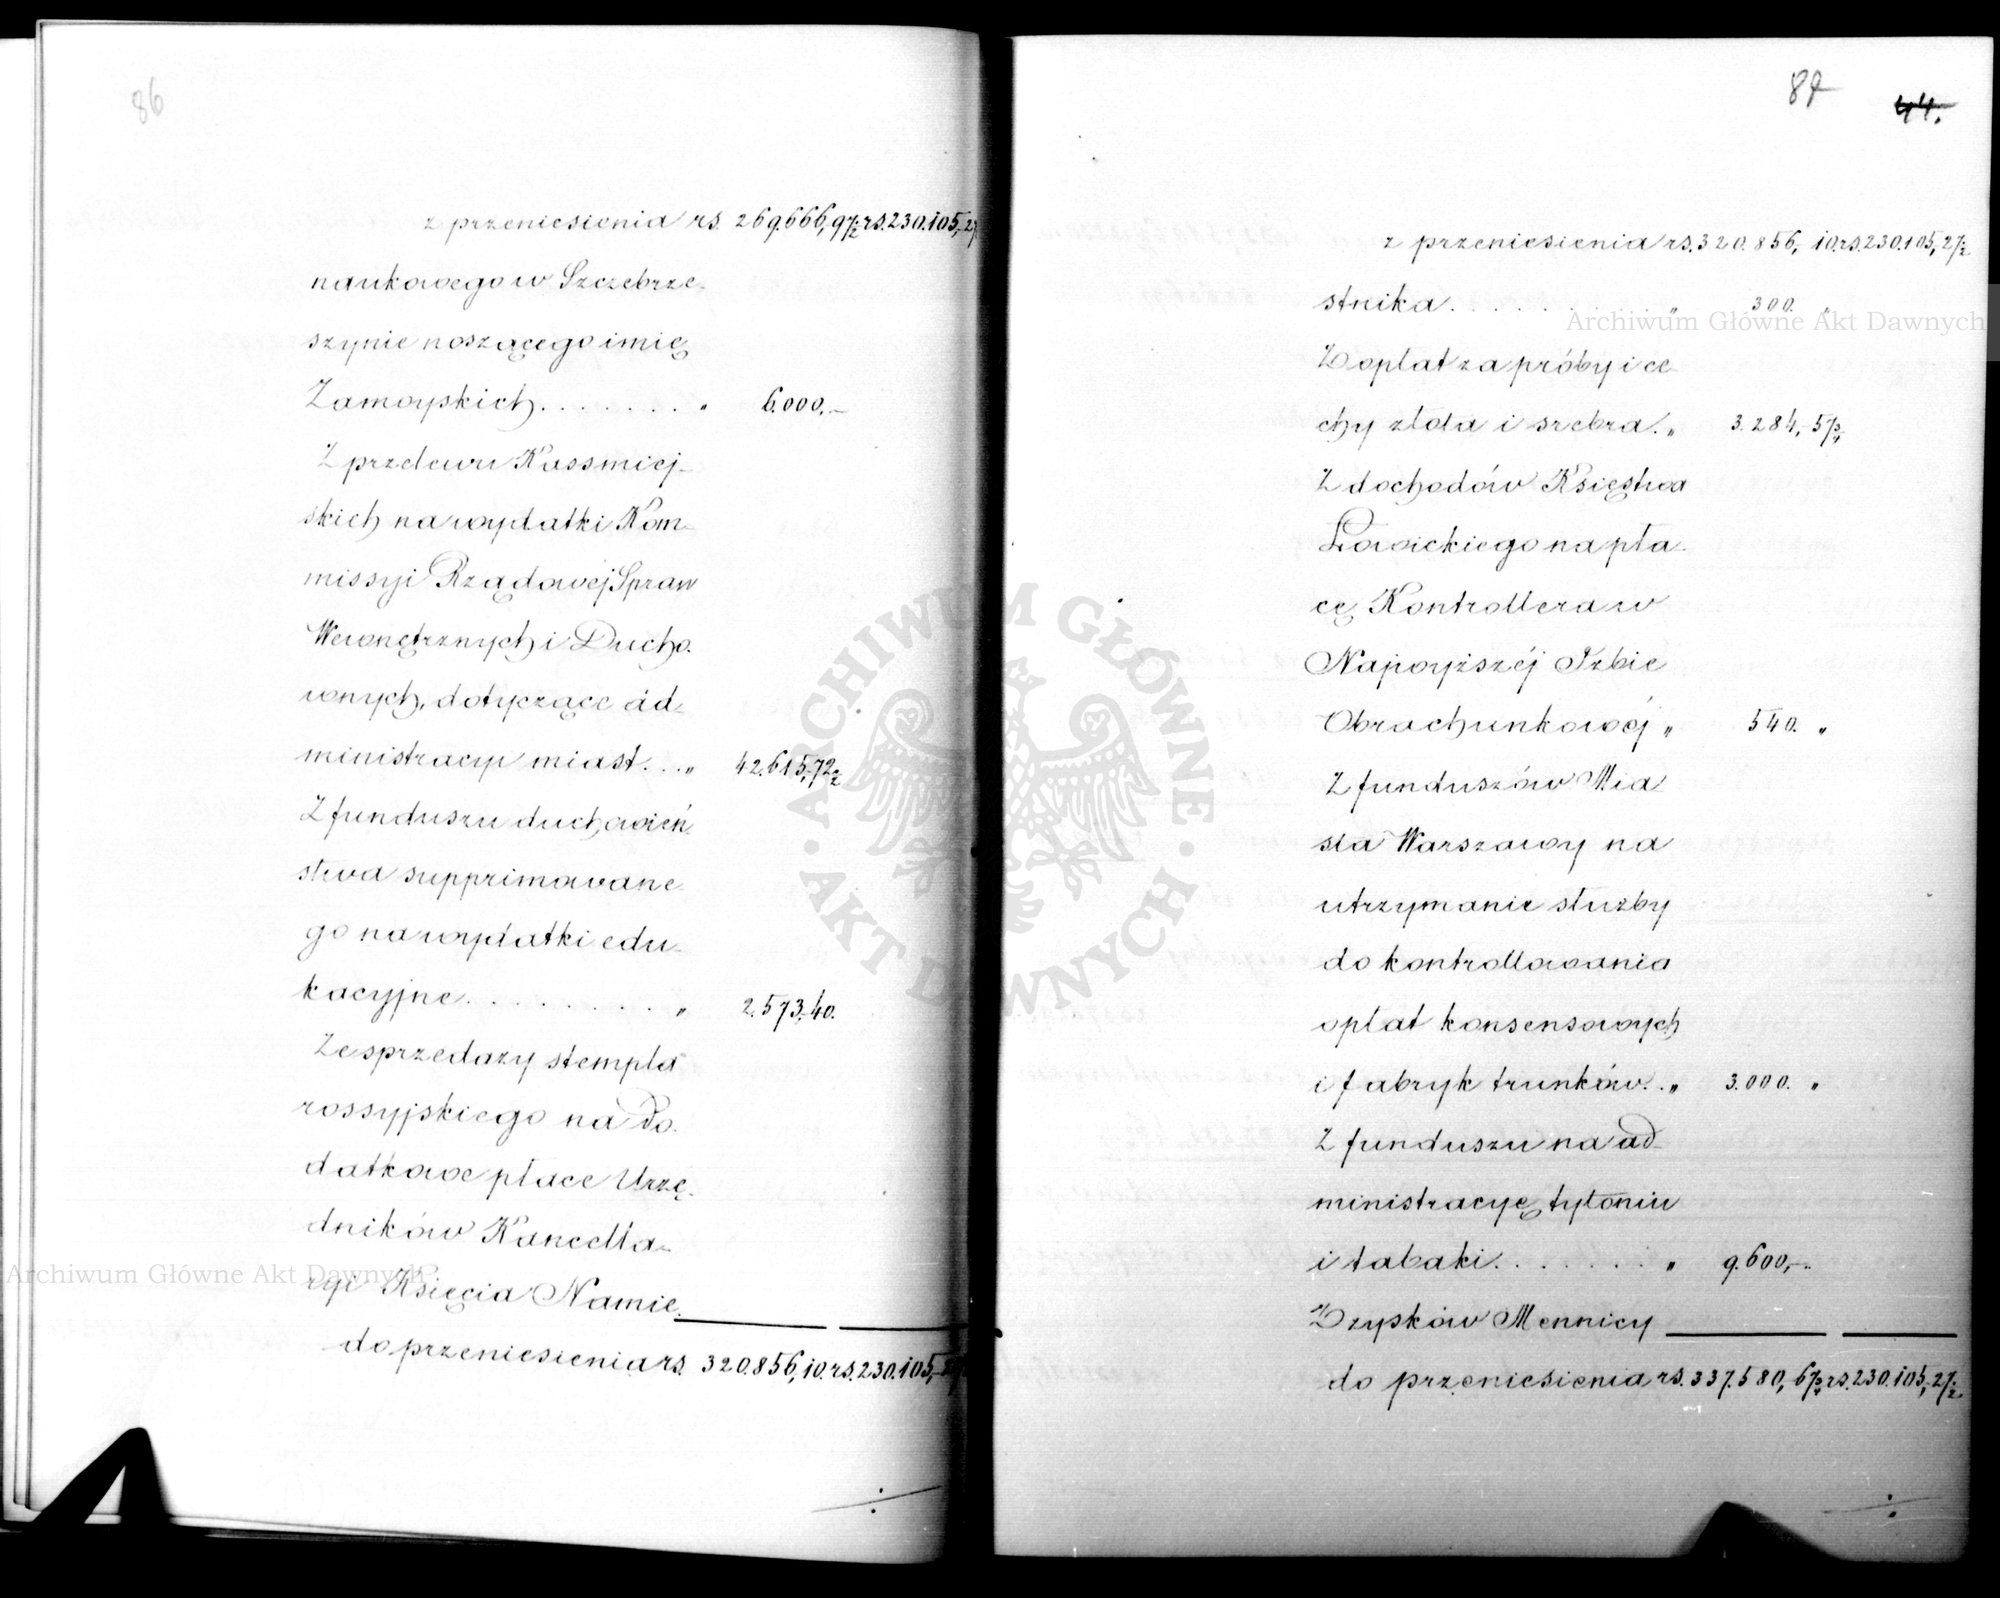 86
z przeniesienia rs. 269.666, 97½ rs. 230.105, 27
naukowego w Szczebrze-
szynie noszącego imię
Zamoyskich . . . . . . . „ 6.000.–
Z przelewu Kass miej-
skich na wydatki Kom-
missyi Rządowéj Spraw
Wewnętrznych i Ducho-
wnych, dotyczące ad-
ministracyi miast . . . „ 42.615, 72½
Z funduszu duchowień-
stwa supprimowane-
go na wydatki edu-
kacyjne . . . . . . . . . „ 2.573, 40.
Ze sprzedazy stempla
rossyjskiego na do-
datkowe płace Urzę-
dników Kancella-
ryi Księcia Namie-
do przeniesienia rs. 320.856, 10. rs. 230.105,
87 44.
z przeniesienia rs. 320.856, 10. rs. 230.105, 27½
stnika . . . . . . . . . „ 300. „
Z opłat za próby i ce-
chy złota i srebra . „ 3.284, 57¾
Z dochodów Księstwa
Łowickiego na pła-
cę Kontrollera w
Najwyższéj Izbie
Obrachunkowéj „ 540. „
Z funduszów Mia-
sta Warszawy na
utrzymanie służby
do kontrollowania
opłat konsensowych
i fabryk trunków . . „ 3.000. „
Z funduszu na ad-
ministracyę tytoniu
i tabaki . . . . . . . „ 9.600,–.
Z zysków Mennicy
do przeniesienia rs. 337.580, 67¾ rs. 230.105, 27½
Archiwum Główne Akt Dawnych
Archiwum Główne Akt Dawnych
ARCHIWUM GŁÓWNE · AKT DAWNYCH ·